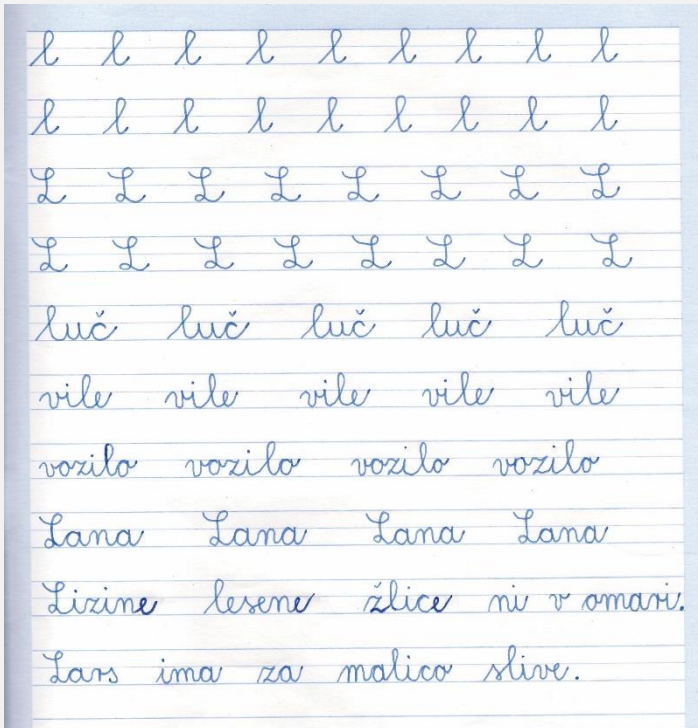 l l l l l l l l l
l l l l l l l l l
L L L L L L L L
L L L L L L L L
luč luč luč luč luč
vile vile vile vile vile
vozilo vozilo vozilo vozilo
Lana Lana Lana Lana
Lizine lesene žlice ni v omari.
Lars ima za malico slive.